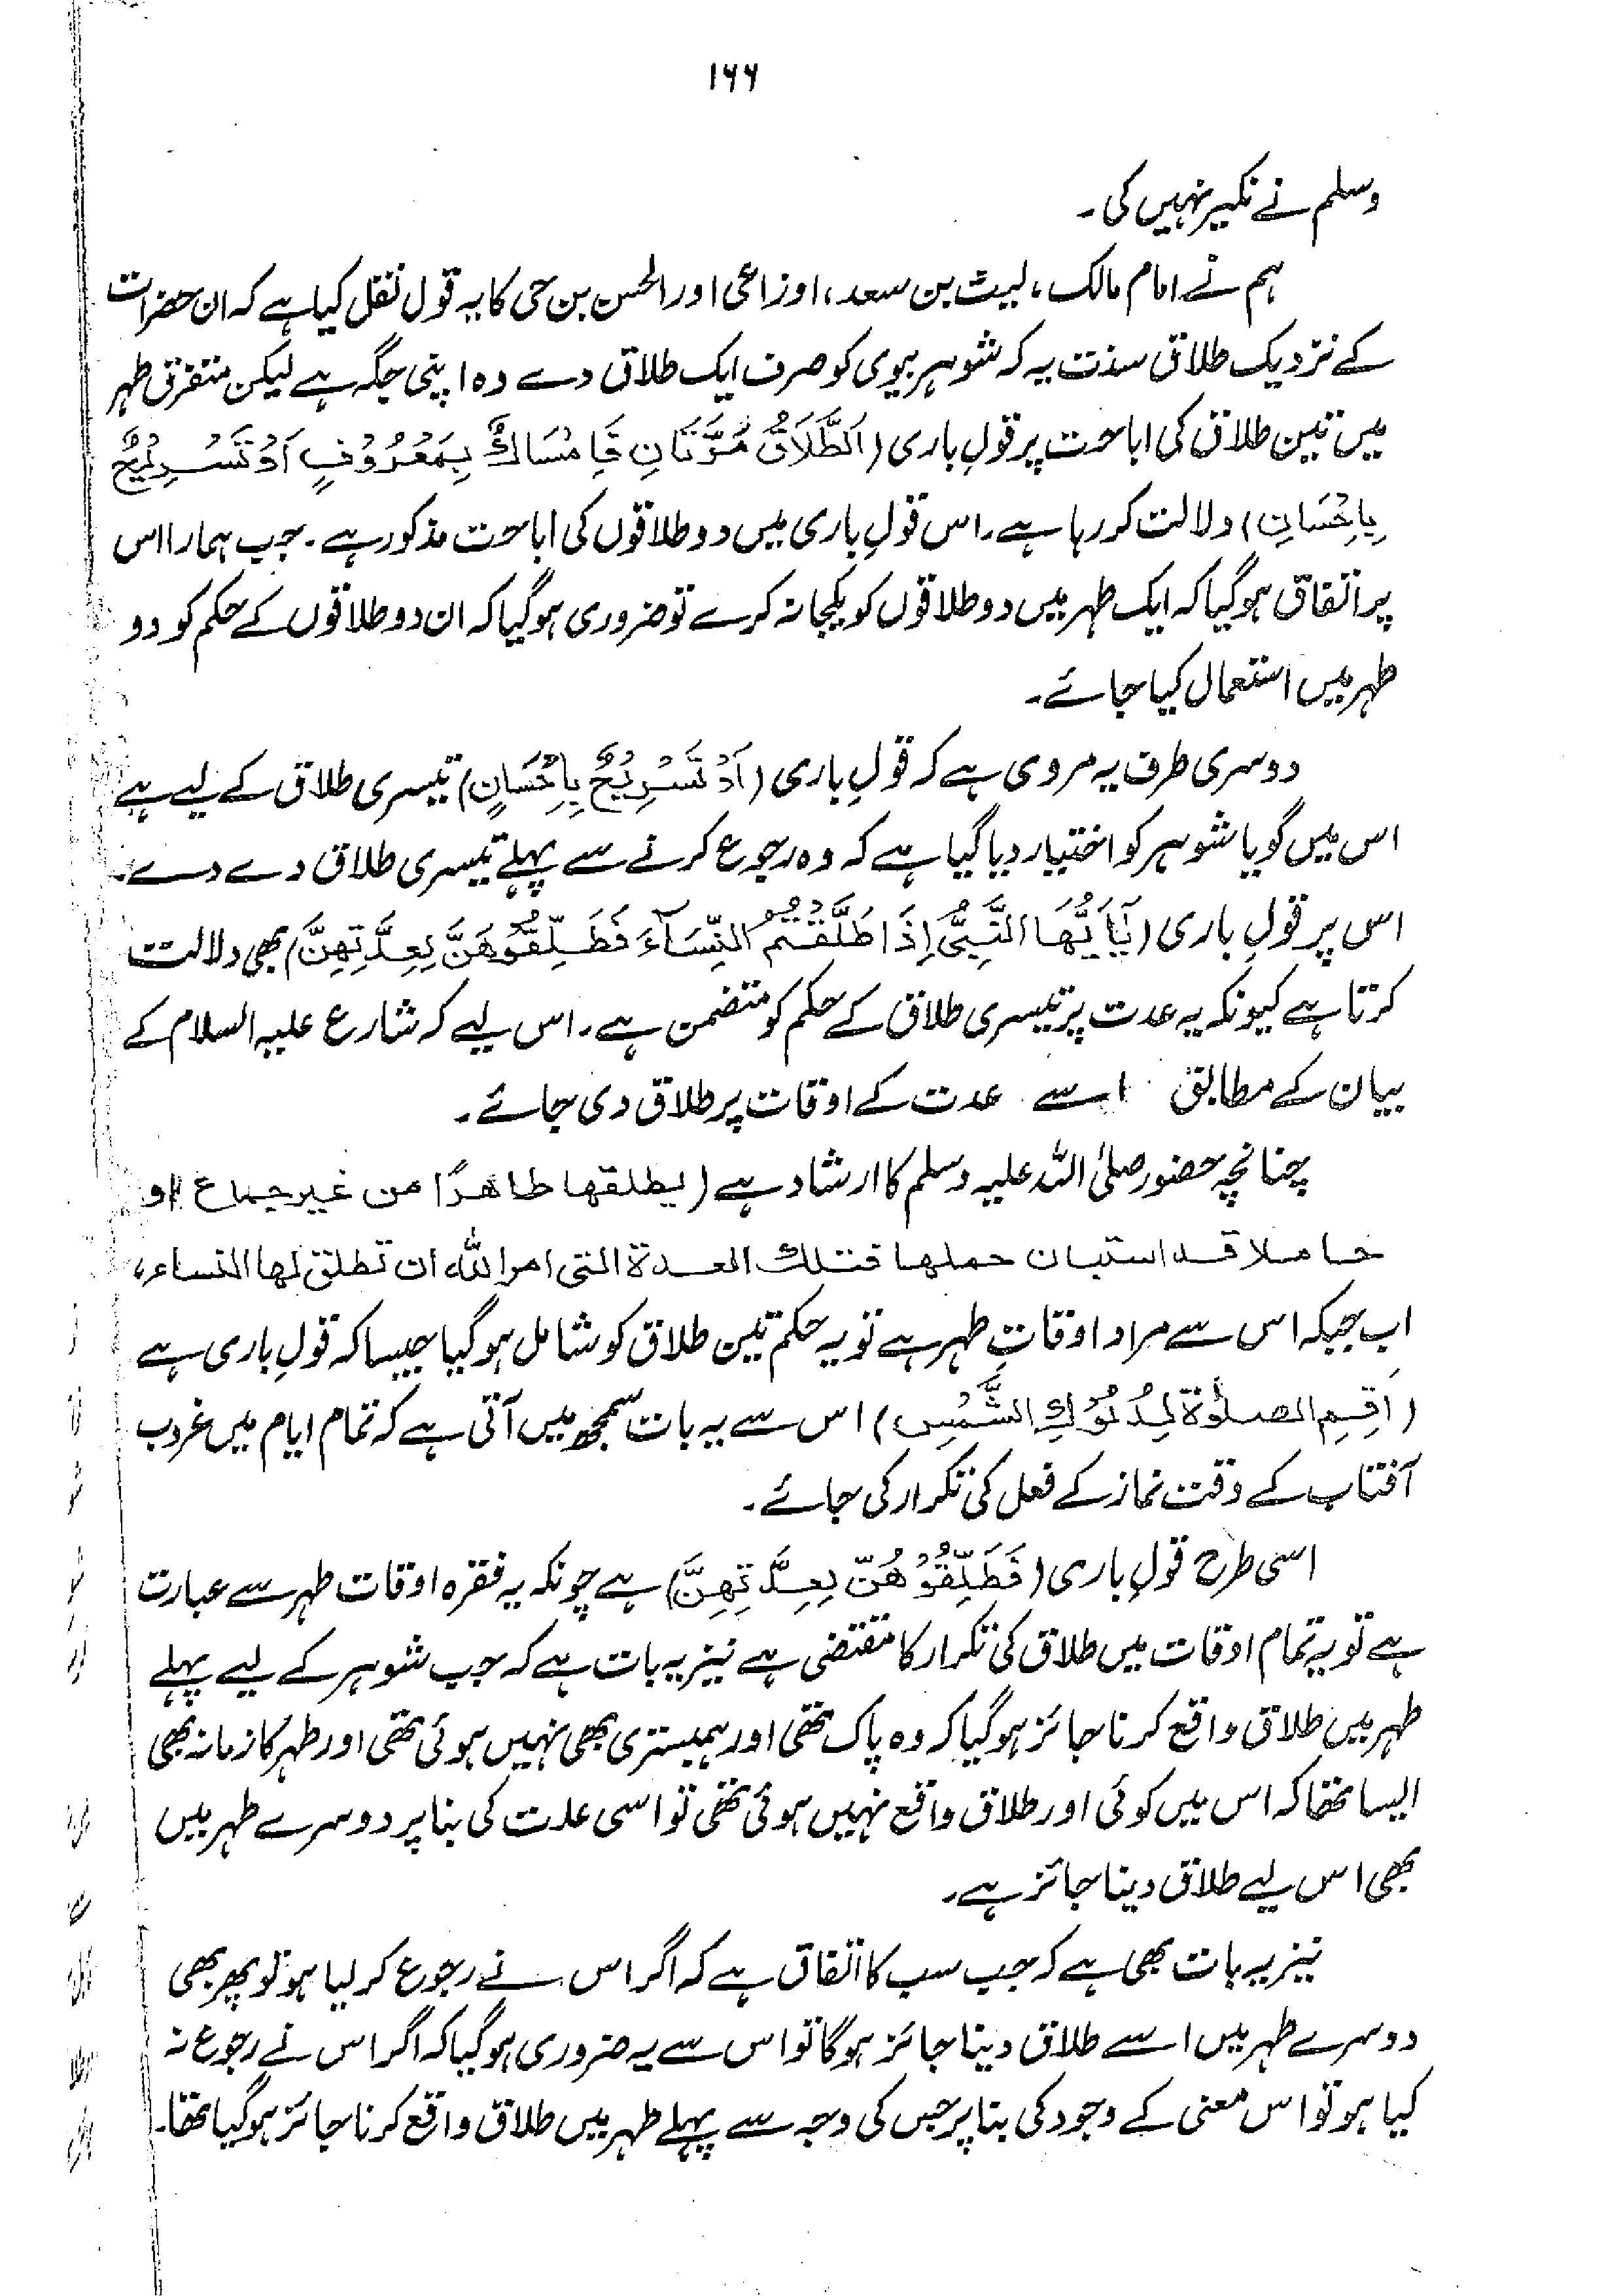 ۱۶۶
وسلم نے نکیر نہیں کی۔
ہم نے امام مالک، لیث بن سعد، اوزاعی اور الحسن بن حی کا یہ قول نقل کیا ہے کہ ان حضرات
کے نزدیک طلاق سنت یہ کہ شوہر بیوی کو صرف ایک طلاق دے وہ اپنی جگہ ہے لیکن متفرق طہر
میں تین طلاق کی اباحت پر قولِ باری (اَلطَّلَاقُ مَرَّتَانِ فَاِمْسَاكٌ بِمَعْرُوْفٍ اَوْ تَسْرِيْحٌ
بِاِحْسَانٍ) دلالت کر رہا ہے۔ اس قولِ باری میں دو طلاقوں کی اباحت مذکور ہے۔ جب ہمارا اس
پر اتفاق ہوگیا کہ ایک طہر میں دو طلاقوں کو یکجا نہ کرے تو ضروری ہوگیا کہ ان دو طلاقوں کے حکم کو دو
طہر میں استعمال کیا جائے۔
دوسری طرف یہ مروی ہے کہ قولِ باری (اَوْ تَسْرِيْحٌ بِاِحْسَانٍ) تیسری طلاق کے لیے ہے
اس میں گویا شوہر کو اختیار دیا گیا ہے کہ وہ رجوع کرنے سے پہلے تیسری طلاق دے دے۔
اس پر قولِ باری (يٰٓاَيُّهَا النَّبِيُّ اِذَا طَلَّقْتُمُ النِّسَآءَ فَطَلِّقُوْهُنَّ لِعِدَّتِهِنَّ) بھی دلالت
کرتا ہے کیونکہ یہ عدت پر تیسری طلاق کے حکم کو متضمن ہے۔ اس لیے کہ شارع علیہ السلام کے
بیان کے مطابق اسے عدت کے اوقات پر طلاق دی جائے۔
چنانچہ حضور صلی اللہ علیہ وسلم کا ارشاد ہے (يطلقها طاهرًا من غير جماع او
حاملا قد استبان حملها فتلك العدة التي امر الله ان تطلق لها النساء،
اب جبکہ اس سے مراد اوقاتِ طہر ہے تو یہ حکم تین طلاق کو شامل ہوگیا جیسا کہ قولِ باری ہے
(اَقِمِ الصلٰوة لِدُلُوْكِ الشَّمْسِ) اس سے یہ بات سمجھ میں آتی ہے کہ تمام ایام میں غروب
آفتاب کے وقت نماز کے فعل کی تکرار کی جائے۔
اسی طرح قولِ باری (فَطَلِّقُوْهُنَّ لِعِدَّتِهِنَّ) ہے چونکہ یہ فقرہ اوقات طہر سے عبارت
ہے تو یہ تمام اوقات میں طلاق کی تکرار کا مقتضی ہے نیز یہ بات ہے کہ جب شوہر کے لیے پہلے
طہر میں طلاق واقع کرنا جائز ہوگیا کہ وہ پاک تھی اور ہمبستری بھی نہیں ہوئی تھی اور طہر کا زمانہ بھی
ایسا تھا کہ اس میں کوئی اور طلاق واقع نہیں ہوئی تھی تو اسی علت کی بنا پر دوسرے طہر میں
بھی اس لیے طلاق دینا جائز ہے۔
نیز یہ بات بھی ہے کہ جب سب کا اتفاق ہے کہ اگر اس نے رجوع کرلیا ہو تو پھر بھی
دوسرے طہر میں اسے طلاق دینا جائز ہوگا تو اس سے یہ ضروری ہوگیا کہ اگر اس نے رجوع نہ
کیا ہو تو اس معنی کے وجود کی بنا پر جس کی وجہ سے پہلے طہر میں طلاق واقع کرنا جائز ہوگیا تھا۔